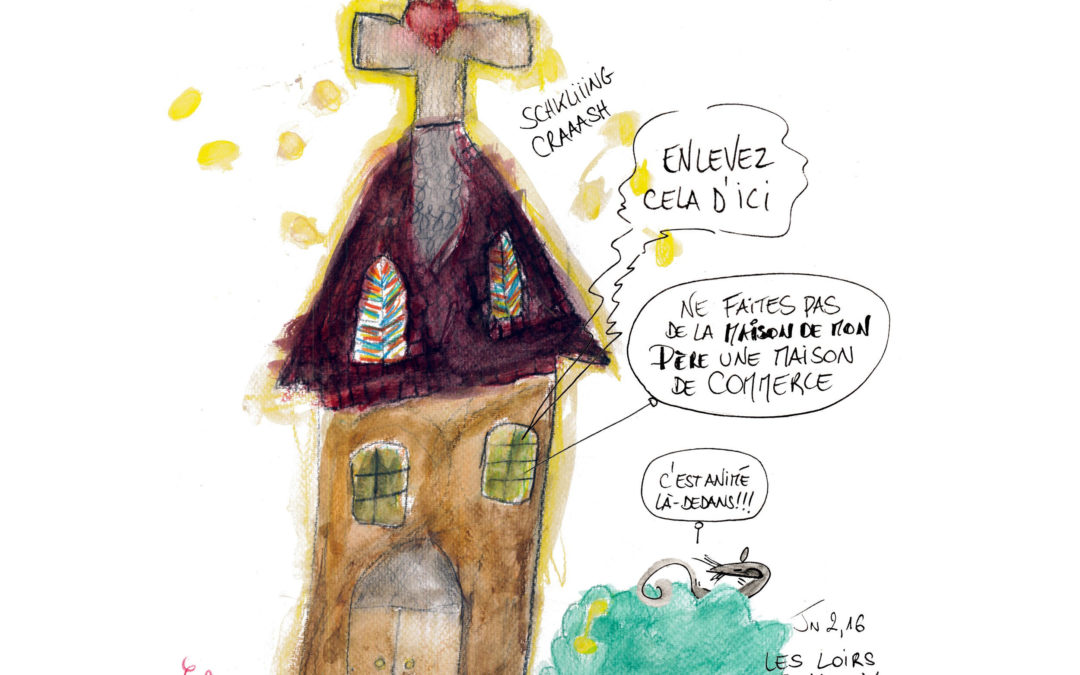 SCHKLIIING
CRAAASH
ENLEVEZ
CELA D'ICI
NE FAITES PAS
DE LA MAISON DE MON
PÈRE UNE MAISON
DE COMMERCE
C'EST ANIMÉ
LÀ-DEDANS!!!
JN 2,16
LES LOIRS